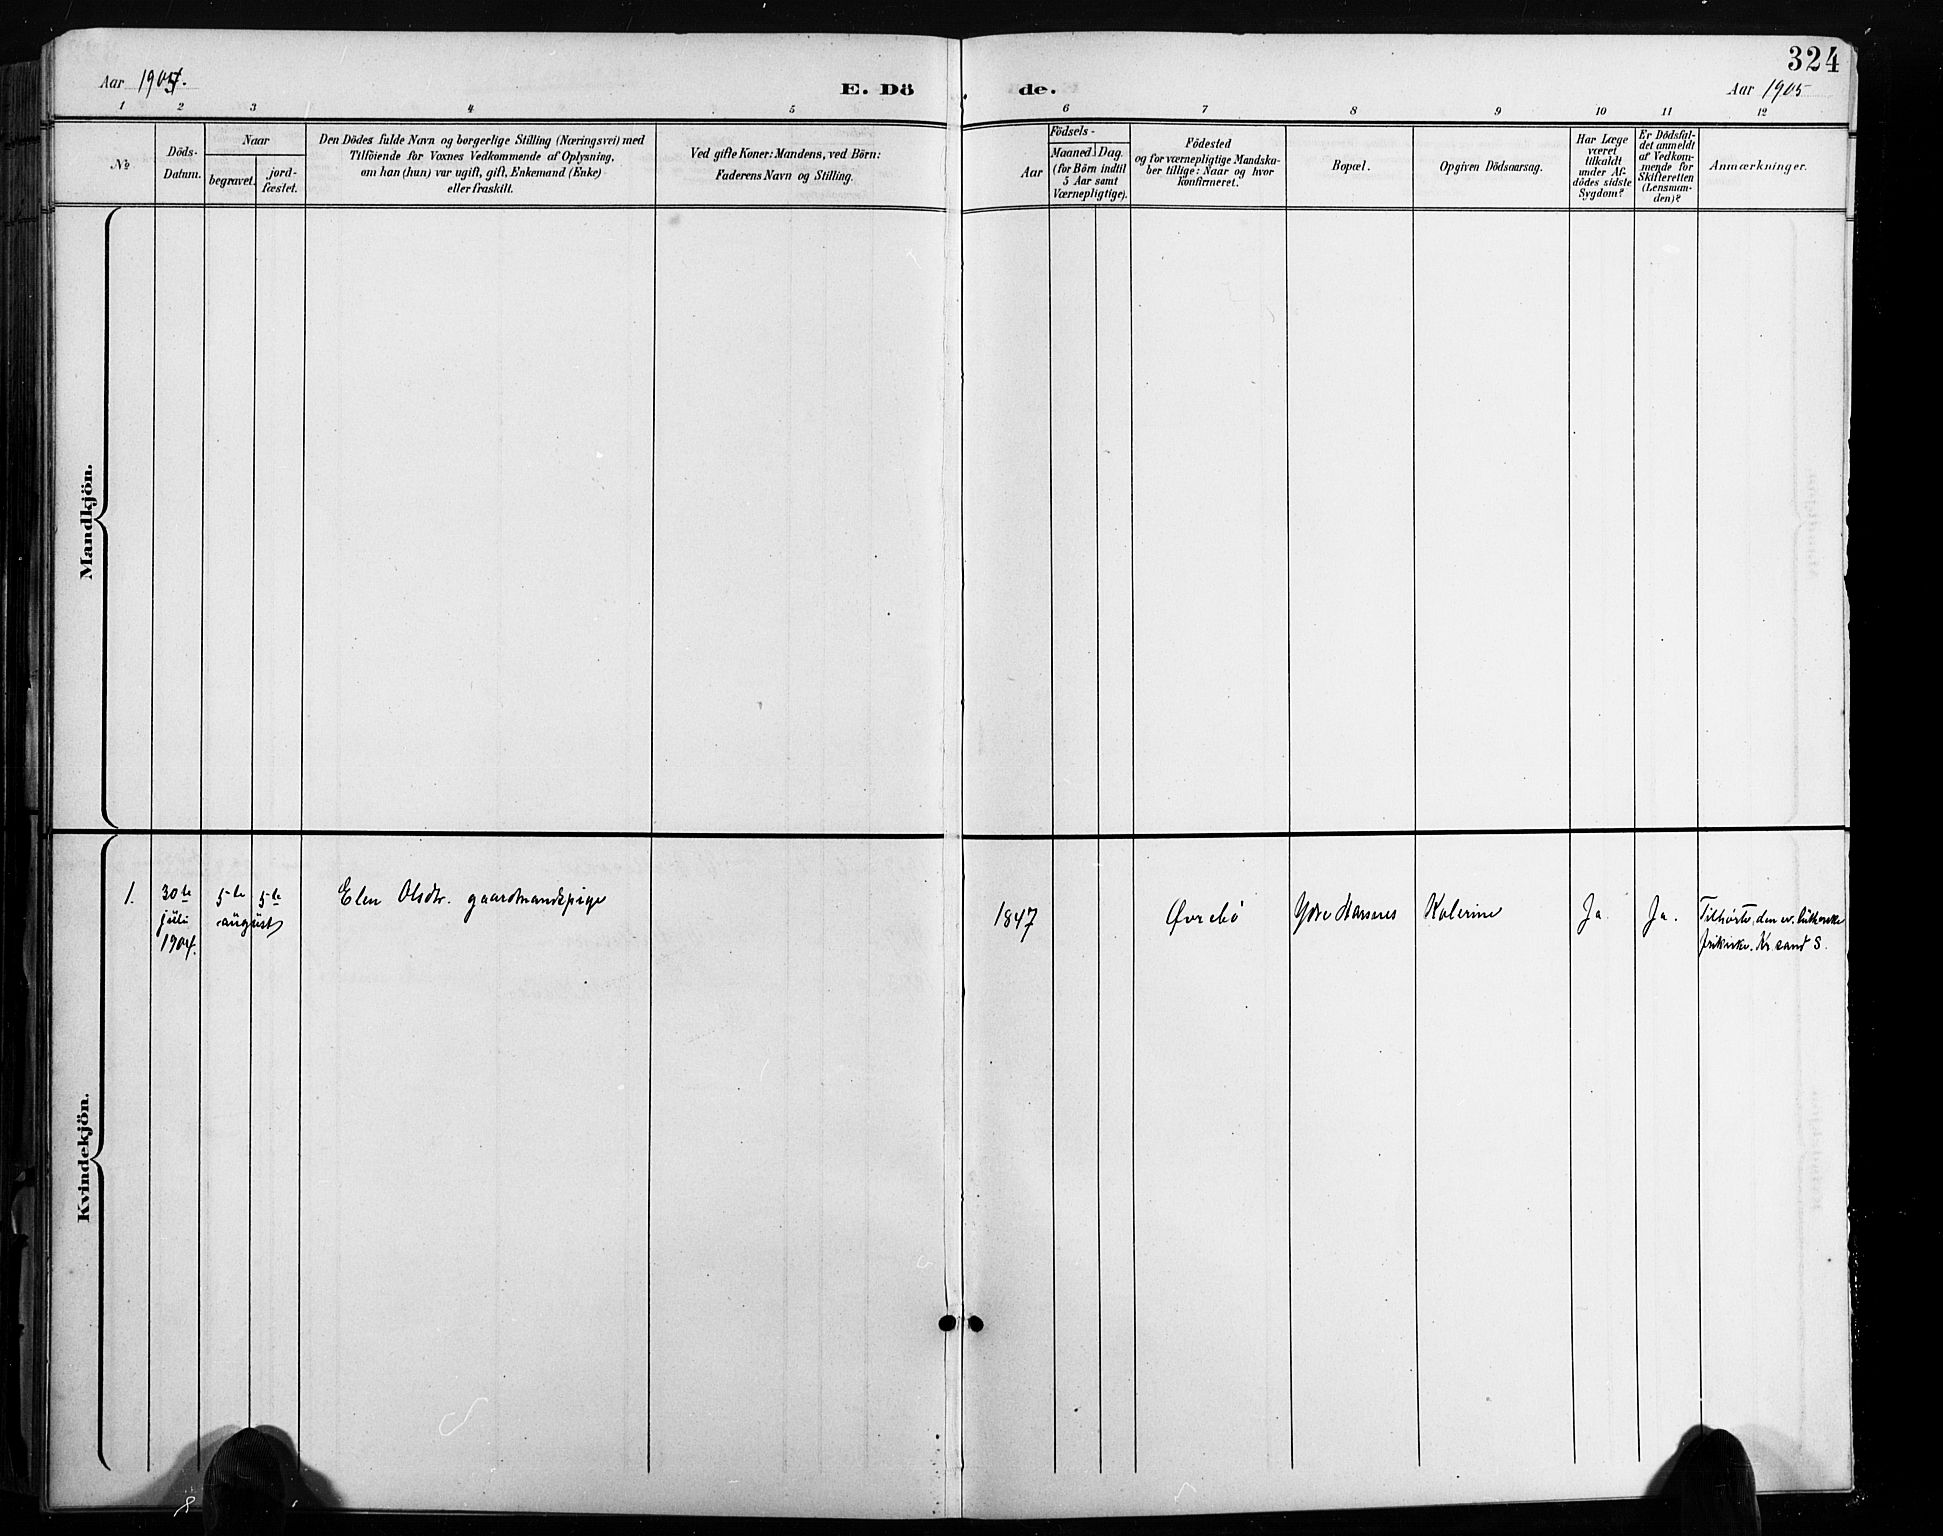 324
Aar 1904.
E. Dö
de.
Aar 1905
1 2 3 4 5 6 7 8 9 10 11 12
No
Döds-
Datum.
Naar
begravet.
jord-
fæstet.
Den Dödes fulde Navn og borgerlige Stilling (Næringsvei) med
Tilföiende for Voxnes Vedkommende af Oplysning,
om han (hun) var ugift, gift, Enkemand (Enke)
eller fraskilt.
Ved gifte Koner: Mandens, ved Börn:
Faderens Navn og Stilling.
Födsels-
Aar
Maaned. Dag.
(for Börn indtil
5 Aar samt
Værnepligtige).
Födested
og for værnepligtige Mandska-
ber tillige: Naar og hvor
konfirmeret.
Bopæl.
Opgiven Dödsaarsag.
Har Læge
været
tilkaldt
under Af-
dödes sidste
Sygdom?
Er Dödsfal-
det anmeldt
af Vedkom-
mende for
Skifteretten
(Lensman-
den)?
Anmærkninger.
Mandkjön.
Kvindekjön.
1.
30te
juli
1904.
5te 5te
august
Elen Olsdtr. gaardmandspige
1847
Øvrebö
Ydre
Kolerine
Ja
Ja.
Tilhørte den ev. lutherske
frikirke. Kr.sand S.